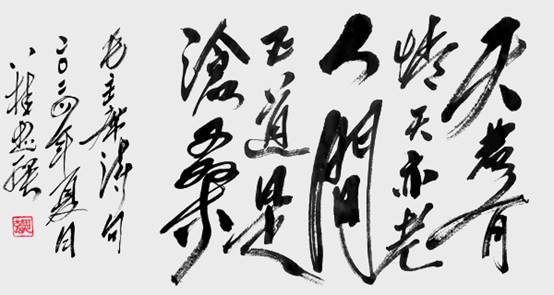 天若有
情天亦老
人間
正道是
滄桑
毛主席诗句
二〇二四年夏月
八桂